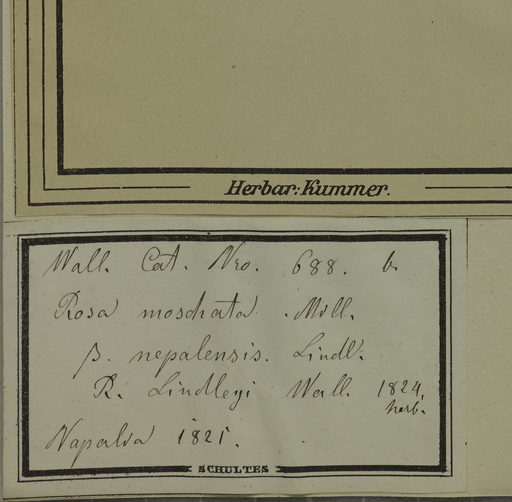 Herbar: Kummer.
Wall. Cat. Nro. 688. b.
Rosa moschata. Mill.
β. nepalensis. Lindl.
R. Lindleyi Wall. 1824.
herb.
Napalia 1821.
SCHULTES